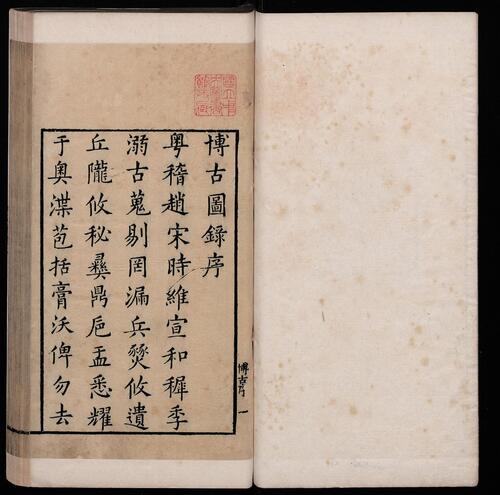 博古圖錄序
粵稽趙宋時維宣和穉季
溺古蒐剔罔漏兵燹攸遺
丘隴攸秘彝鼎巵盂悉耀
于奧渫苞括膏沃俾勿去
博古序 一